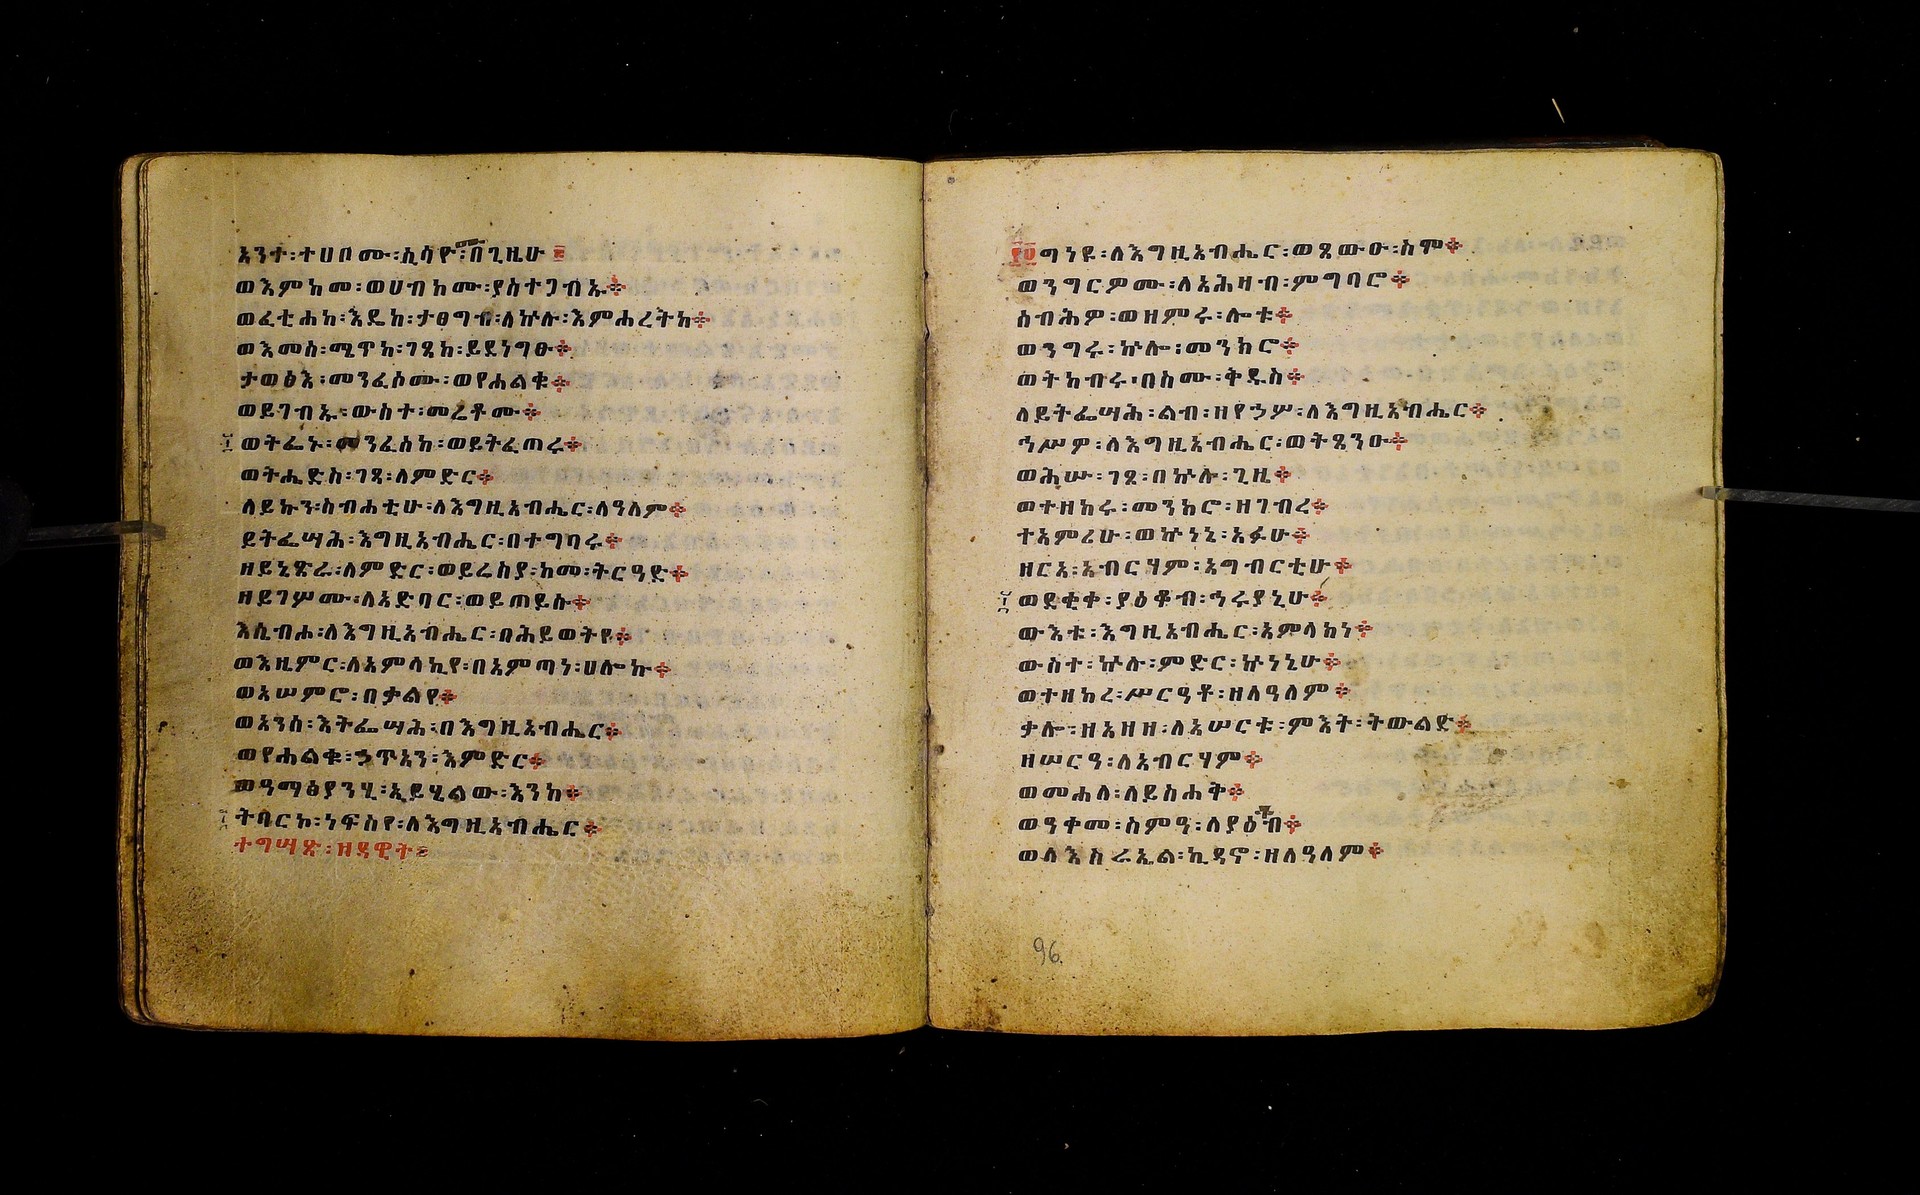 አንተ፡ተሀቦሙ፡ሲሳዮሙ፡በጊዜሁ፨
ወእምከመ፡ወሀብከሙ፡ያስተጋብኡ፨
ወፈቲሐከ፡እዴከ፡ታፀግብ፡ለኵሉ፡እምሐረትከ፨
ወእመሰ፡ሜጥከ፡ገጸከ፡ይደነግፁ፨
ታወፅእ፡መንፈሶሙ፡ወየሐልቁ፨
ወይገብኡ፡ውስተ፡መሬቶሙ፨
ወትፌኑ፡መንፈሰከ፡ወይትፈጠሩ፨
ወትሔድስ፡ገጻ፡ለምድር፨
ለይኩን፡ስብሐቲሁ፡ለእግዚአብሔር፡ለዓለም፨
ይትፌሣሕ፡እግዚአብሔር፡በተግባሩ፨
ዘይኔጽራ፡ለምድር፡ወይሬስያ፡ከመ፡ትርዓድ፨
ዘይገሦሙ፡ለአድባር፡ወይጠይሱ፨
እሴብሐ፡ለእግዚአብሔር፡በሕይወትየ፨
ወእዜምር፡ለአምላኪየ፡በአምጣነ፡ሀሎኩ፨
ወአሠምሮ፡በቃልየ፨
ወአንሰ፡እትፌሣሕ፡በእግዚአብሔር፨
ወየሐልቁ፡ኃጥአን፡እምድር፨
ወዓማፅያንሂ፡ኢይሂልው፡እንከ፨
ትባርክ፡ነፍስየ፡ለእግዚአብሔር፨
ተግሣጽ፡ዘዳዊት፨
፻፬ ግነዩ፡ለእግዚአብሔር፡ወጸውዑ፡ስሞ፨
ወንግርዎሙ፡ለአሕዛብ፡ምግባሮ፨
ሰብሕዎ፡ወዘምሩ፡ሎቱ፨
ወንግሩ፡ኵሎ፡መንክሮ፨
ወትከብሩ፡በስሙ፡ቅዱስ፨
ለይትፌሣሕ፡ልብ፡ዘየኃሦ፡ለእግዚአብሔር፨
ኅሥዎ፡ለእግዚአብሔር፡ወትጸንዑ፨
ወሕሡ፡ገጸ፡በኵሉ፡ጊዜ፨
ወተዘከሩ፡መንክሮ፡ዘገብረ፨
ተአምረሁ፡ወኵነኔ፡አፉሁ፨
ዘርአ፡አብርሃም፡አግብርቲሁ፨
ወደቂቀ፡ያዕቆብ፡ኅሩያኒሁ፨
ውእቱ፡እግዚአብሔር፡አምላክነ፨
ውስተ፡ኵሉ፡ምድር፡ኵነኔሁ፨
ወተዘከረ፡ሥርዓቶ፡ዘለዓለም፨
ቃሎ፡ዘአዘዘ፡ለአሠርቱ፡ምእት፡ትውልድ፨
ዘሠርዓ፡ለአብርሃም፨
ወመሐለ፡ለይስሐቅ፨
ወዓቀመ፡ስምዓ፡ለያዕቆብ፨
ወለእስራኤል፡ኪዳኖ፡ዘለዓለም፨
96.